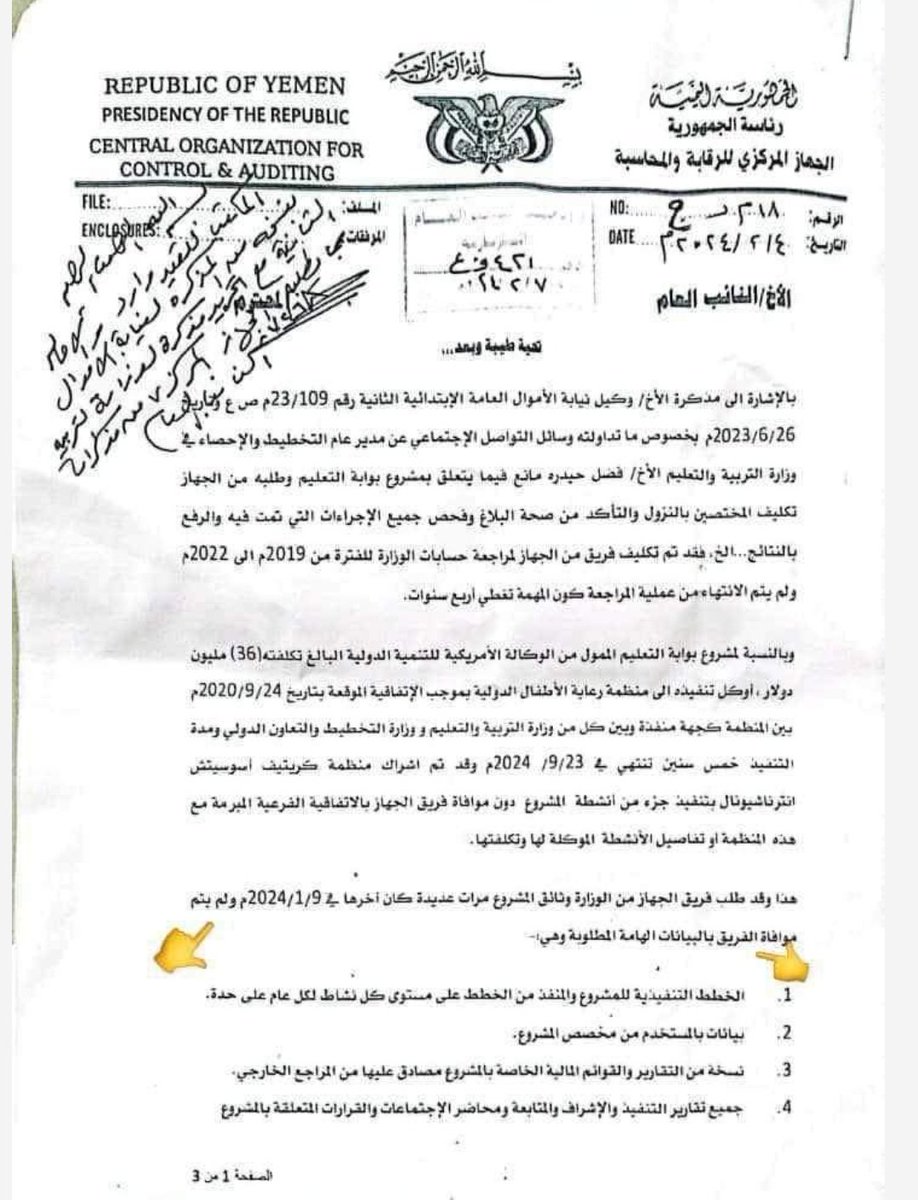 بسم الله الرحمن الرحيم
REPUBLIC OF YEMEN
PRESIDENCY OF THE REPUBLIC
CENTRAL ORGANIZATION FOR
CONTROL & AUDITING
الجمهورية اليمنية
رئاسة الجمهورية
الجهاز المركزي للرقابة والمحاسبة
FILE: الملف:
ENCLOSURES: المرفقات:
NO: ٢١٨ الرقم:
DATE ٢٠٢٤/٢/٤م التاريخ:
٤٢١
الأخ/النائب العام
المحترم
تحية طيبة وبعد...
بالإشارة الى مذكرة الأخ/ وكيل نيابة الأموال العامة الإبتدائية الثانية رقم 23/109م ص ع وتاريخ
2023/6/26م بخصوص ما تداولته وسائل التواصل الإجتماعي عن مدير عام التخطيط والإحصاء في
وزارة التربية والتعليم الأخ/ فضل حيدره مانع فيما يتعلق بمشروع بوابة التعليم وطلبه من الجهاز
تكليف المختصين بالنزول والتأكد من صحة البلاغ وفحص جميع الإجراءات التي تمت فيه والرفع
بالنتائج...الخ، فقد تم تكليف فريق من الجهاز لمراجعة حسابات الوزارة للفترة من 2019م الى 2022م
ولم يتم الانتهاء من عملية المراجعة كون المهمة تغطي أربع سنوات.
وبالنسبة لمشروع بوابة التعليم الممول من الوكالة الأمريكية للتنمية الدولية البالغ تكلفته(36) مليون
دولار، أوكل تنفيذه الى منظمة رعاية الأطفال الدولية بموجب الإتفاقية الموقعة بتاريخ 2020/9/24م
بين المنظمة كجهة منفذة وبين كل من وزارة التربية والتعليم و وزارة التخطيط والتعاون الدولي ومدة
التنفيذ خمس سنين تنتهي في 9/23/ 2024م وقد تم اشراك منظمة كريتيف أسوسيتش
انترناشيونال بتنفيذ جزء من أنشطة المشروع دون موافاة فريق الجهاز بالاتفاقية الفرعية المبرمة مع
هذه المنظمة أو تفاصيل الأنشطة الموكلة لها وتكلفتها.
هذا وقد طلب فريق الجهاز من الوزارة وثائق المشروع مرات عديدة كان أخرها في 2024/1/9م ولم يتم
موافاة الفريق بالبيانات الهامة المطلوبة وهي:-
1. الخطط التنفيذية للمشروع والمنفذ من الخطط على مستوى كل نشاط لكل عام على حدة.
2. بيانات بالمستخدم من مخصص المشروع.
3. نسخة من التقارير والقوائم المالية الخاصة بالمشروع مصادق عليها من المراجع الخارجي.
4. جميع تقارير التنفيذ والإشراف والمتابعة ومحاضر الإجتماعات والقرارات المتعلقة بالمشروع
الصفحة 1 من 3